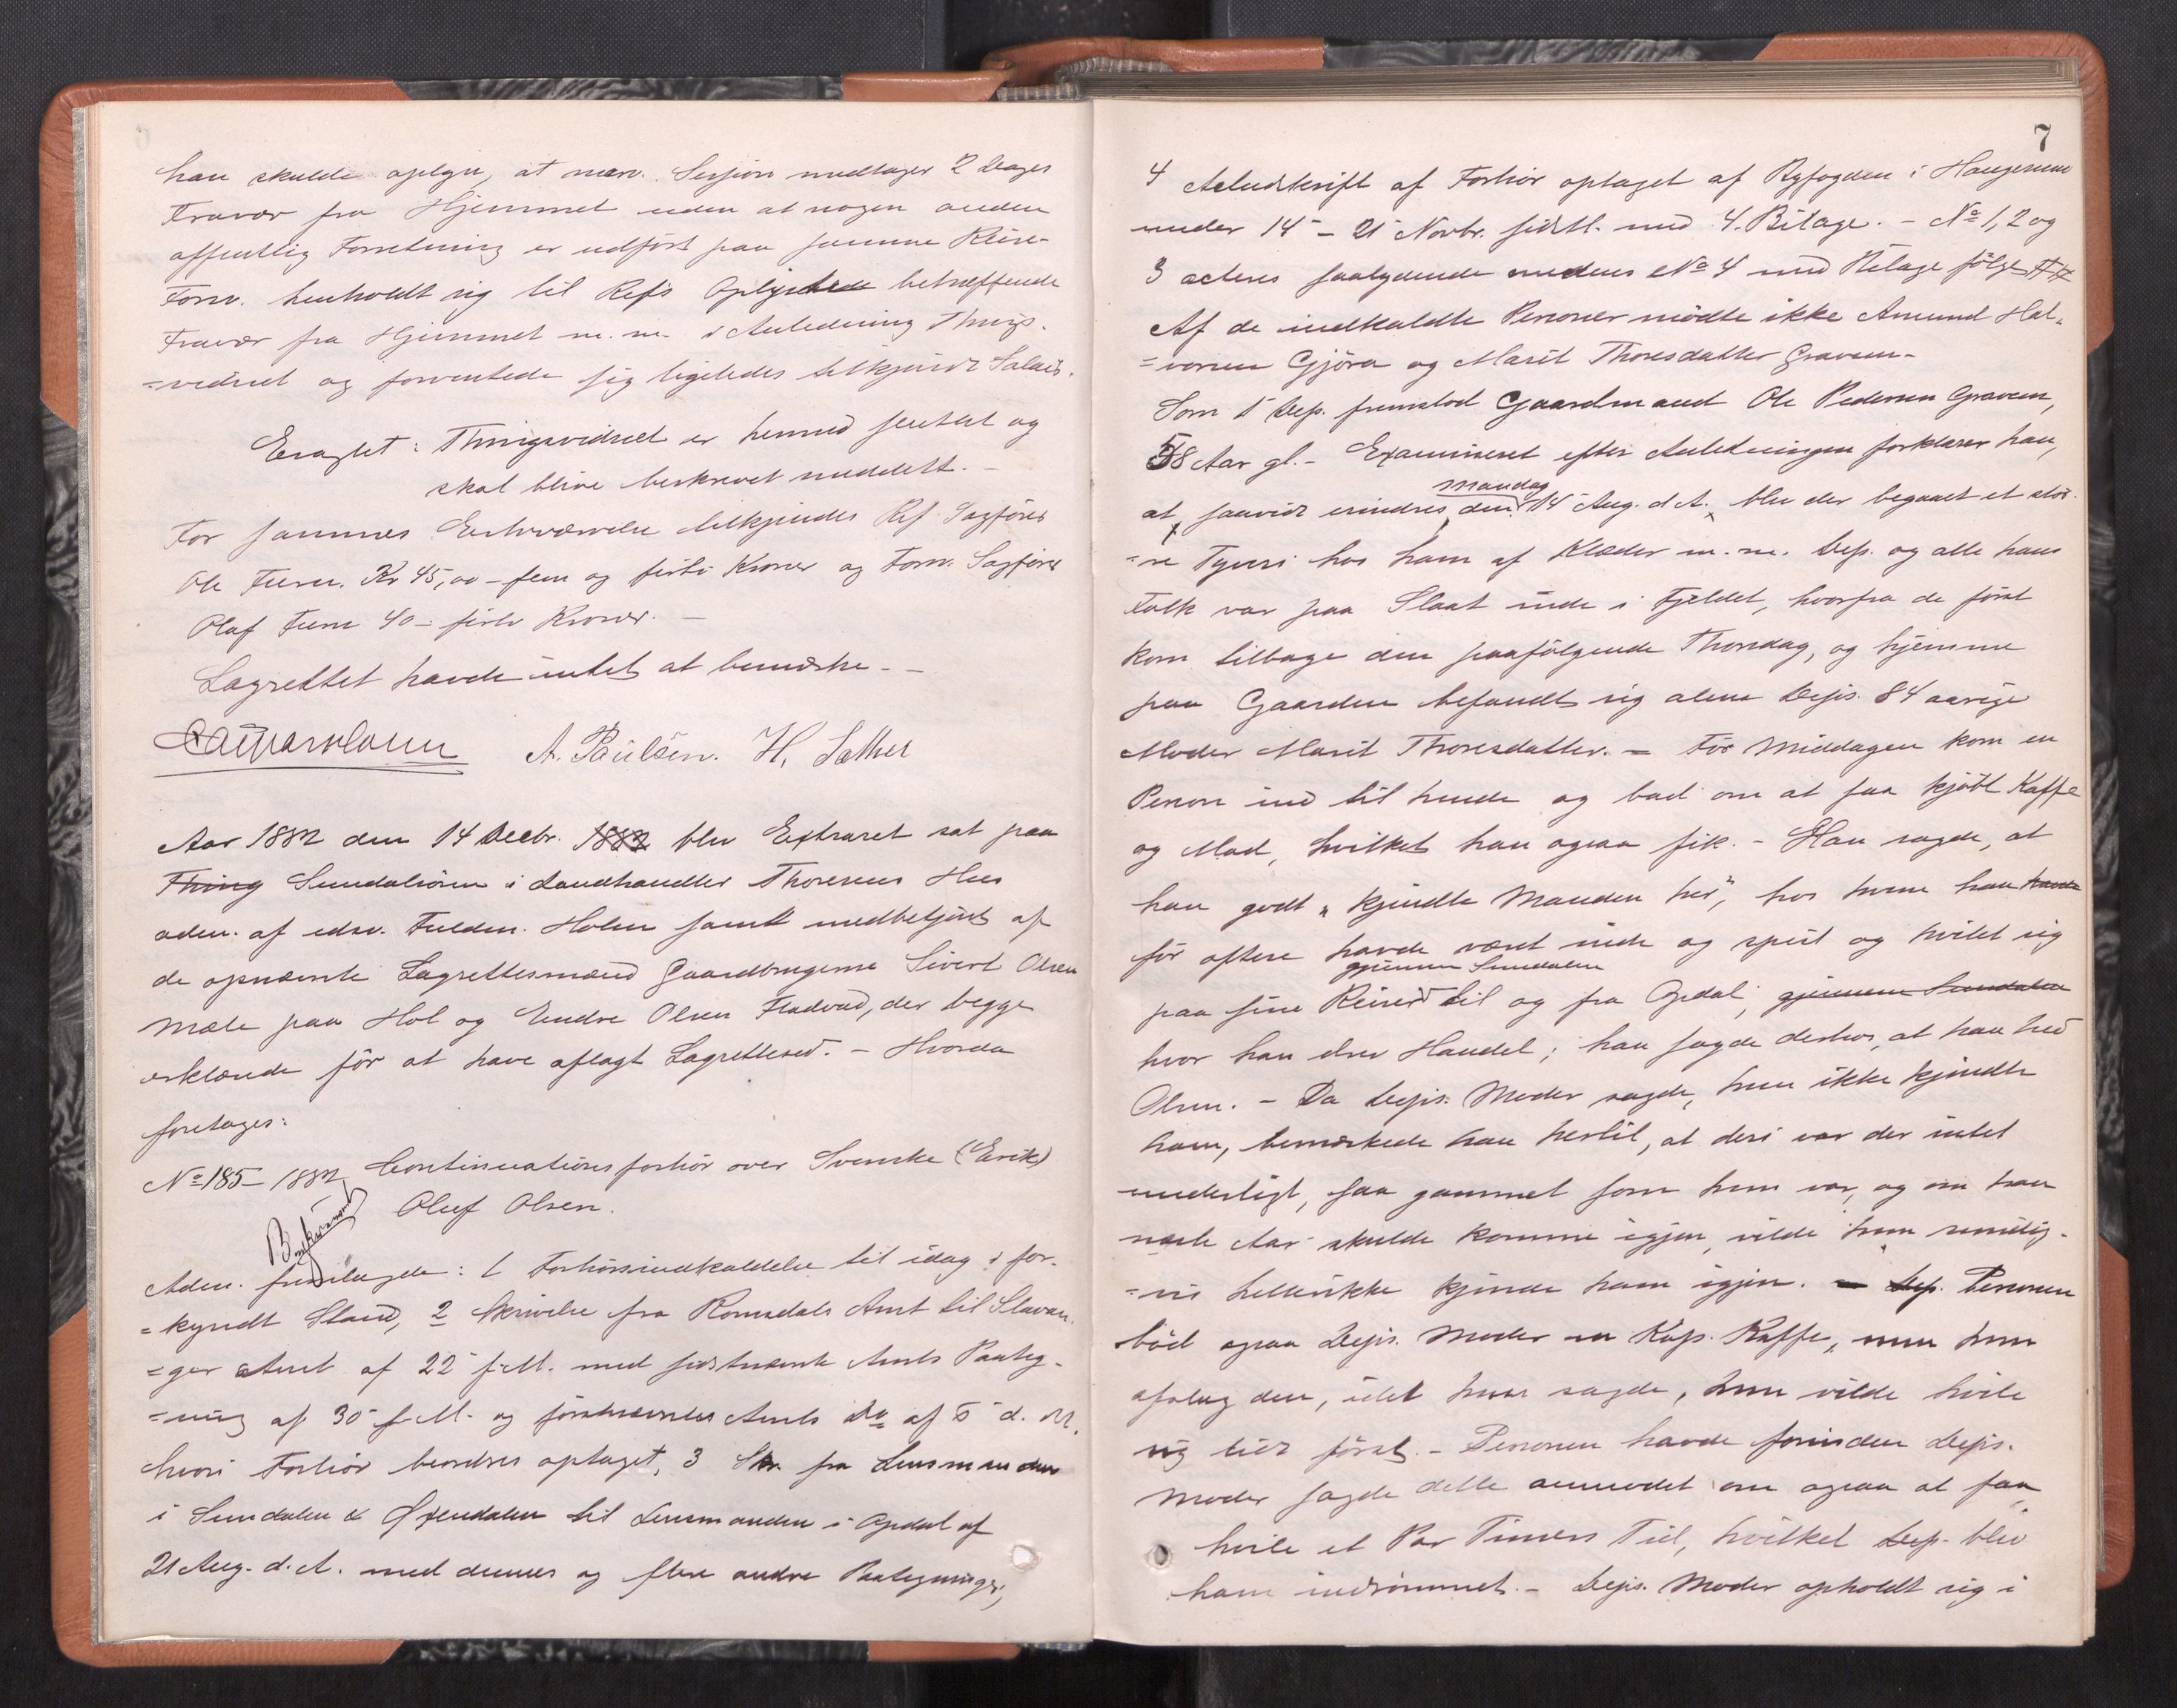 han skulde oplyse, at nærv. Session medtager 2 Dages
Fravær fra Hjemmet uden at nogen anden
offentlig Forretning er udført paa samme Reise-
Forsv. henholdt sig til Refs Oplysende betræffende
Fravær fra Hjemmet m.m. i Anledning Things-
=vidnet og forventede sig ligeledes tilkjendt Salair.
Eragtet: Thingsvidnet er hermed sluttet og
skal blive beskrevet meddelt. -
For sammes Erhvervelse tilkjendes Ref. Sagfører
Ole Furu. Kr 45,00 - fem og firti Kroner og Forsv. Sagfører
Olaf Furu 40 - firti Kroner. -
Lagrettet havde intet at bemærke - -
A. Paulsen. H. Sæther
Aar 1882 den 14 Decbr. 1882 blev Extraret sat paa
Thing Sundalsøren i Landhandler Thoresens Hus
adm. af edsv. Fuldm. Holm samt medbetjent af
de opnævnte Lagrettesmænd Gaardbrugerne Sivert Olsen
Mæle paa Hol og Endre Olsen Fladvad, der begge
erklærede før at have aflagt Lagretteed. - Hvorda
foretages:
No 185 - 1882 Continuationsforhør over Svenske (Erik)
Oluf Olsen.
Beskrevet
Adm. fremlagde: 1 Forhørsindkaldelse til idag i for-
=kyndt Stand, 2 Skrivelse fra Romsdals Amt til Stavan-
=ger Amt af 22 f.M. med sidstnævnte Amts Paateg-
=ning af 30 f.M. og førstnævntes Amts Do af 5 d. M.
hvori Forhør beordres optaget, 3 Skr. fra Lensmanden
i Sundalen & Øxendalen til Lensmanden i Opdal af
21 Aug. d. A. med dennes og flere andre Paategninger,
7
4 Udskrift af Forhør optaget af Byfogden i Haugesund
under 14 - 21 Novbr. sidstl. med 4. Bilage. - No 1, 2 og
3 acteres saalydende medens No 4 med Bilage følger
Af de indkaldte Personer mødte ikke Amund Hal-
=vorsen Gjöra og Marit Thoresdatter Gravem -
Som 1 Dep. fremstod Gaardmand Ole Pedersen Gravem,
58 Aar gl. - Examineret efter Anledningen forklarer han,
mandag
at, saavidt erindres, den 14 Aug. d. A. blev der begaaet et stør-
=re Tyveri hos ham af Klæder m. m. Dep. og alle hans
Folk var paa Slaat inde i Fjeldet, hvorfra de først
kom tilbage den paafølgende Thorsdag, og hjemme
paa Gaarden befandt sig alene Deps. 84 aarige
Moder Marit Thoresdatter. - Før Middagen kom en
Person ind til hende og bad om at faa kjøbt Kaffe
og Mad, hvilket han ogsaa fik. - Han sagde, at
han godt "kjendte Manden her", hos hvem han havde
før oftere havde været inde og spist og hvilet sig
gjennem Sundalen
paa sine Reiser til og fra Opdal, gjennem Sundalen
hvor han drev Handel; han sagde derhos, at han hed
Olsen. - Da Deps. Moder sagde, hun ikke kjendte
ham, bemærkede han hertil, at deri var der intet
underligt, saa gammel som hun var, og om han
næste Aar skulde komme igjen, vilde hun rimelig-
=vis hellerikke kjende ham igjen. - Dep. Personen
bød ogsaa Deps. Moder en Kop. Kaffe, men hun
afslog den, idet hun sagde, hun vilde hvile
sig lidt først. - Personen havde forinden Deps.
Moder sagde dette anmodet om ogsaa at faa
hvile et Par Timers Tid, hvilket Dep. blev
ham indrømmet. - Deps. Moder opholdt sig i